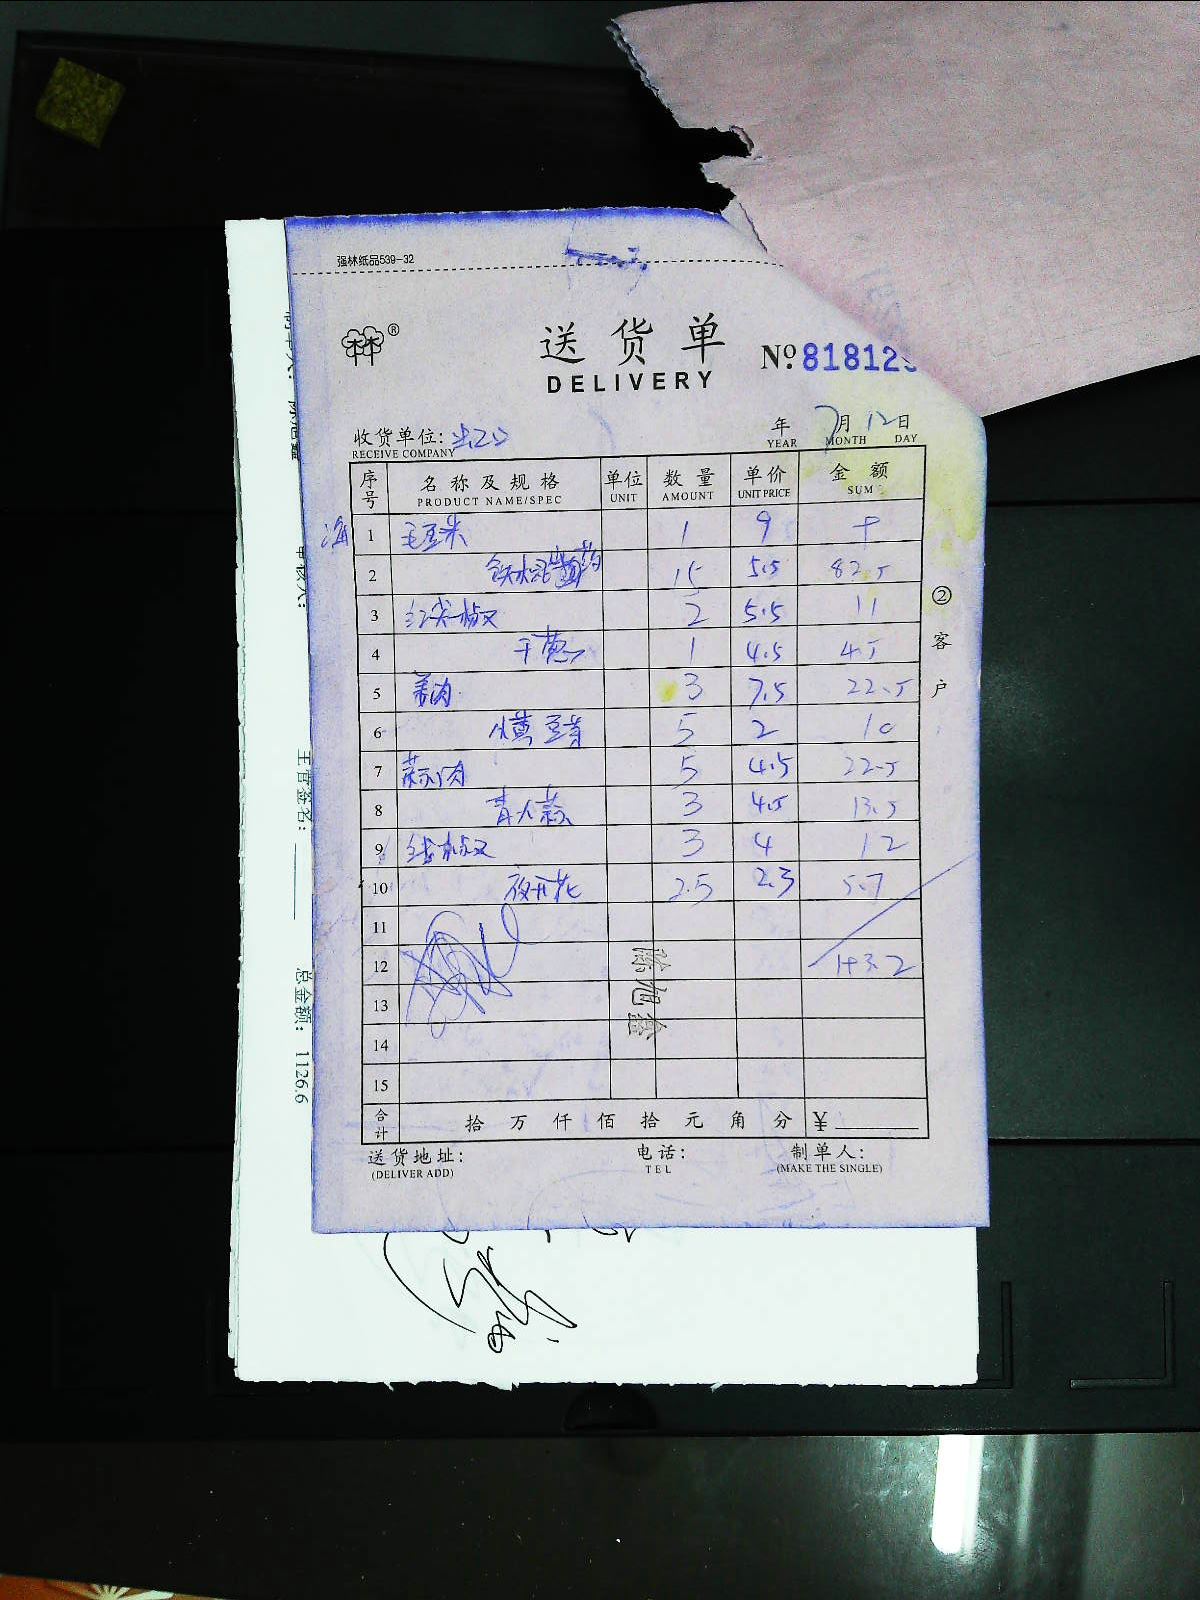 强林纸品539-32
林林®
送货单
DELIVERY
Nº 81812
收货单位:
RECEIVE COMPANY
7月12日
年
YEAR MONTH DAY
序号 名称及规格 单位 数量 单价 金额
PRODUCT NAME/SPEC UNIT AMOUNT UNIT PRICE SUM
海 1 毛豆米 1 9 9
2 铁棍山药 15 5.5 82.5
3 红尖椒 2 5.5 11
4 干葱 1 4.5 4.5
5 姜肉 3 7.5 22.5
6 小黄豆芽 5 2 10
7 蒜肉 5 4.5 22.5
8 青大蒜 3 4.5 13.5
9 线椒 3 4 12
10 夜开花 2.5 2.3 5.7
11
12 193.2
13
14
15
合计 拾万仟佰拾元角分 ¥
送货地址: 电话: 制单人:
(DELIVER ADD) TEL (MAKE THE SINGLE)
②客户
陈旭鑫
审核人:
主管签名:
总金额: 1126.6